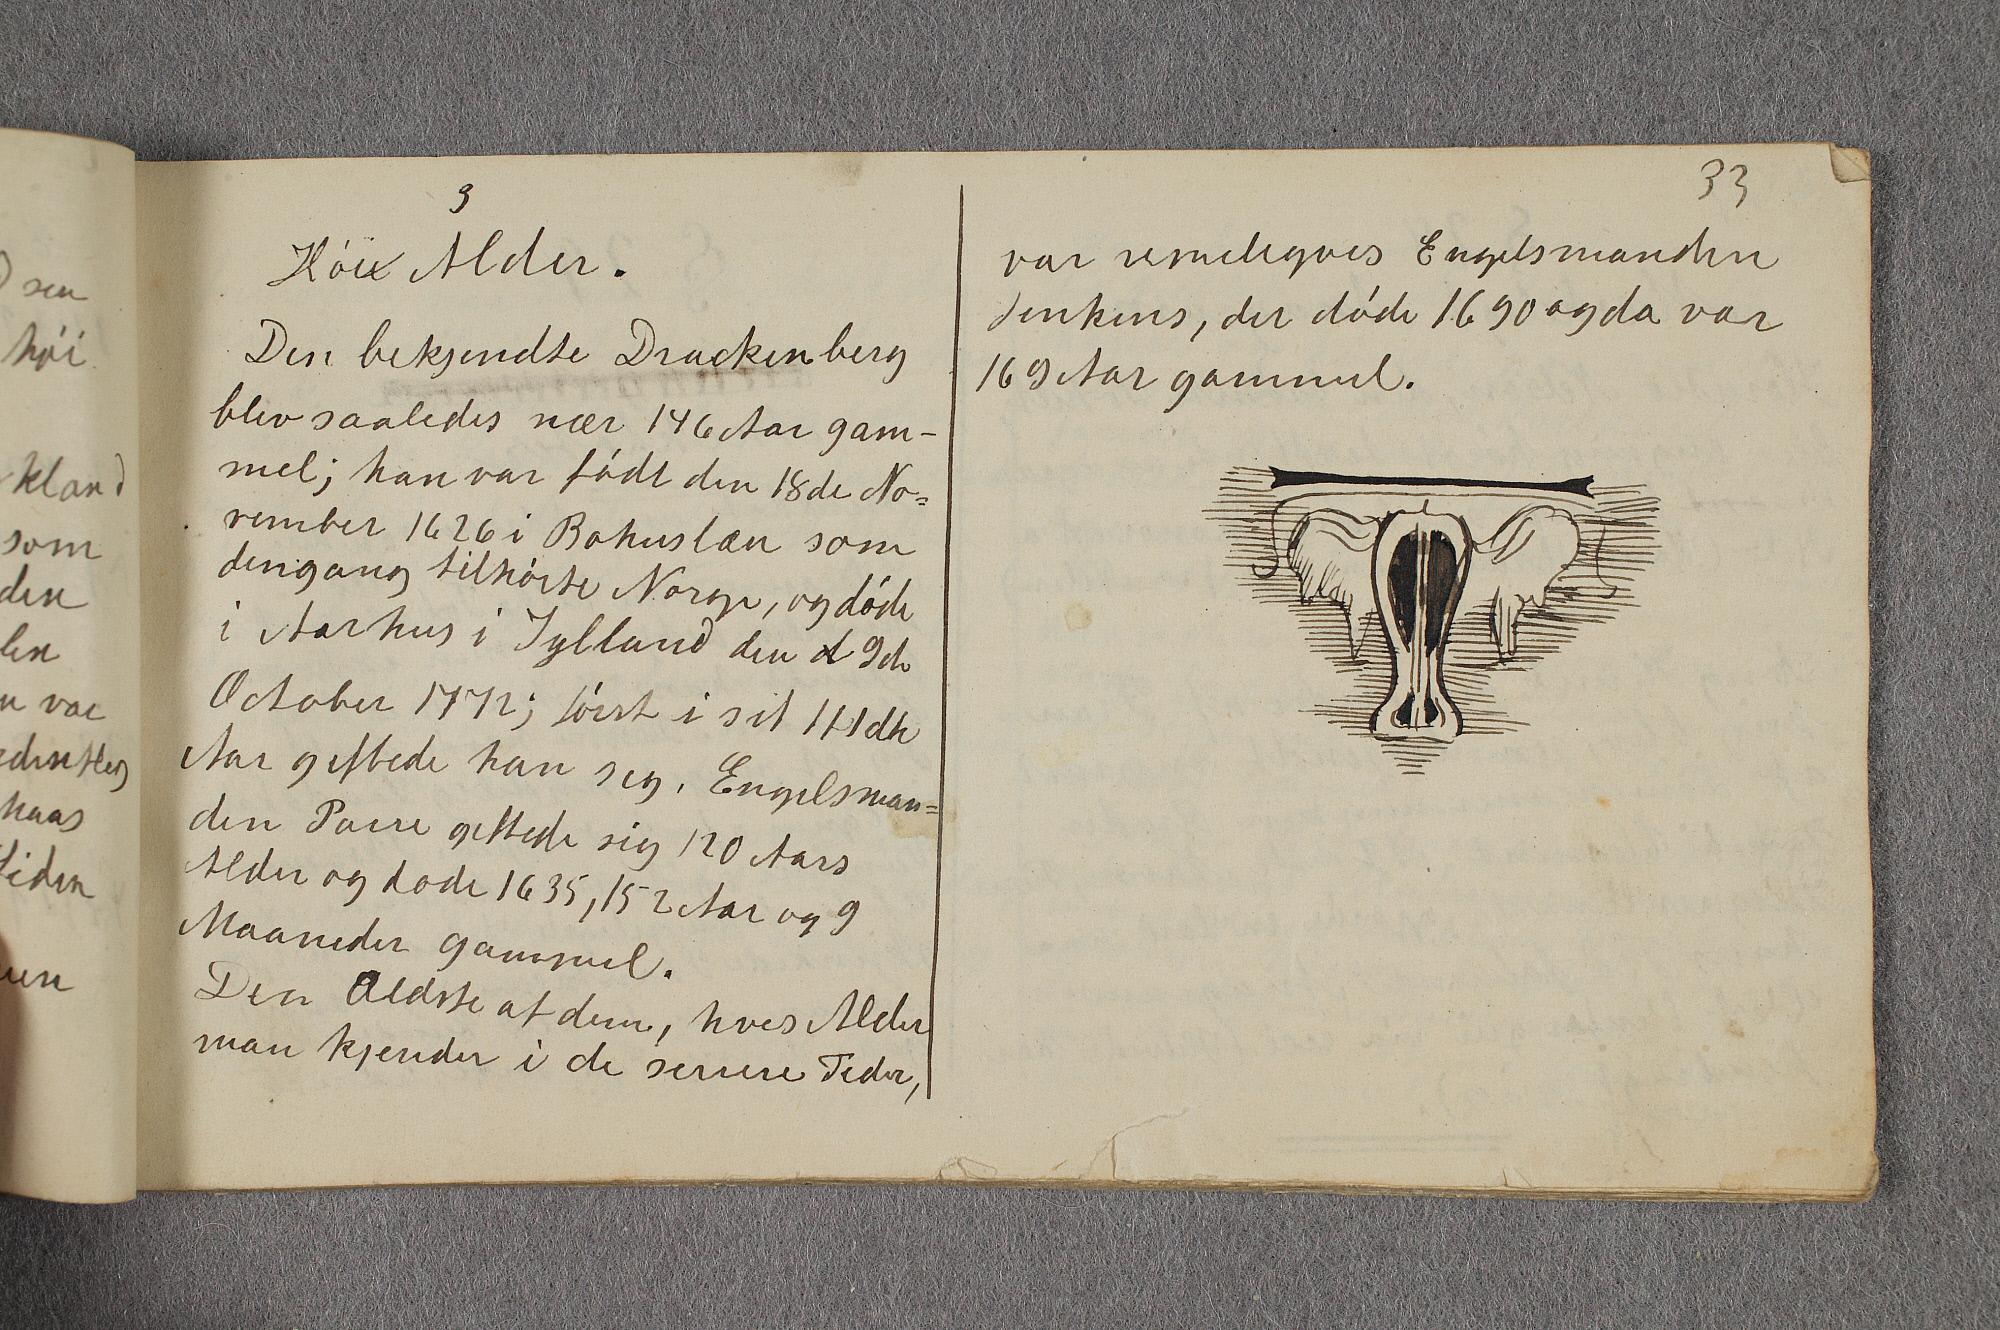 sen
høi
kland
som
den
len
var
haas
tiden
3
Høie Alder.
Den bekjendte Drackenberg
blev saaledes nær 146 Aar gam-
mel; han var födt den 18de No=
vember 1626 i Bohuslæn som
dengang tilhörte Norge, og döde
i Aarhus i Jylland den 9de
October 1772; först i sit 111de
Aar giftede han sig. Engelsman=
den Parre giftede sig 120 Aars
Alder og døde 1635, 152 Aar og 9
Maaneder gammel.
Den Ældste af dem, hvis Alder
man kjender i de senere Tider,
33
var rimeligvis Engelsmanden
Jenkins, der döde 1690 og da var
169 Aar gammel.